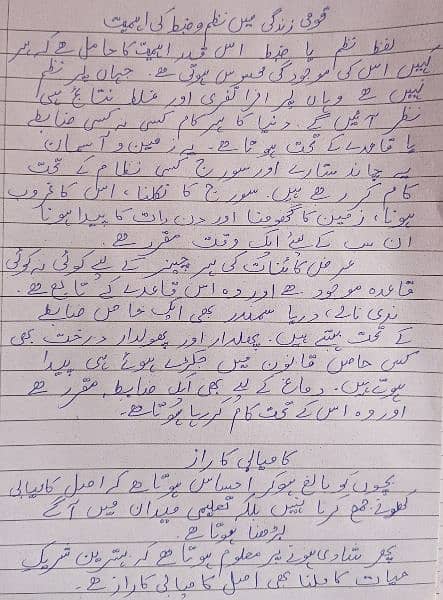 قومی زندگی میں نظم و ضبط کی اہمیت
لفظ نظم یا ضبط اس قدر اہمیت کا حامل ہے کہ ہر
کہیں اس کی موجودگی محسوس ہوتی ہے۔ جہاں پر نظم
نہیں ہے وہاں پر افراتفری اور غلط نتائج ہی
نظر آئیں گے۔ دنیا کا ہر کام کسی نہ کسی ضابطے
یا قاعدے کے تحت ہوتا ہے۔ یہ زمین و آسمان
یہ چاند ستارے اور سورج کسی نظام کے تحت
کام کر رہے ہیں۔ سورج کا نکلنا، اس کا غروب
ہونا، زمین کا گھومنا اور دن رات کا پیدا ہونا
ان سب کے لیئے ایک وقت مقرر ہے۔
کائنات کی ہر چیز کے لیے کوئی نہ کوئی
قاعدہ موجود ہے اور وہ اس قاعدے کے تابع ہے۔
ندی نالے، دریا سمندر بھی ایک خاص ضابطے
کے تحت بہتے ہیں۔ پھلدار اور پھولدار درخت بھی
کسی خاص قانون میں جکڑے ہوئے ہی پیدا
ہوتے ہیں۔ دماغ کے لیے بھی ایک ضابطہ مقرر ہے
اور وہ اس کے تحت کام کر رہا ہوتا ہے۔
کامیابی کا راز
بچوں کو بالغ ہو کر احساس ہوتا ہے کہ اصل کامیابی
کھلونے جمع کرنا نہیں بلکہ تعلیمی میدان میں آگے
بڑھنا ہوتا ہے۔
پھر شادی ہونے پر معلوم ہوتا ہے کہ بہترین شریک
حیات کا ملنا بھی اصل کامیابی کا راز ہے۔